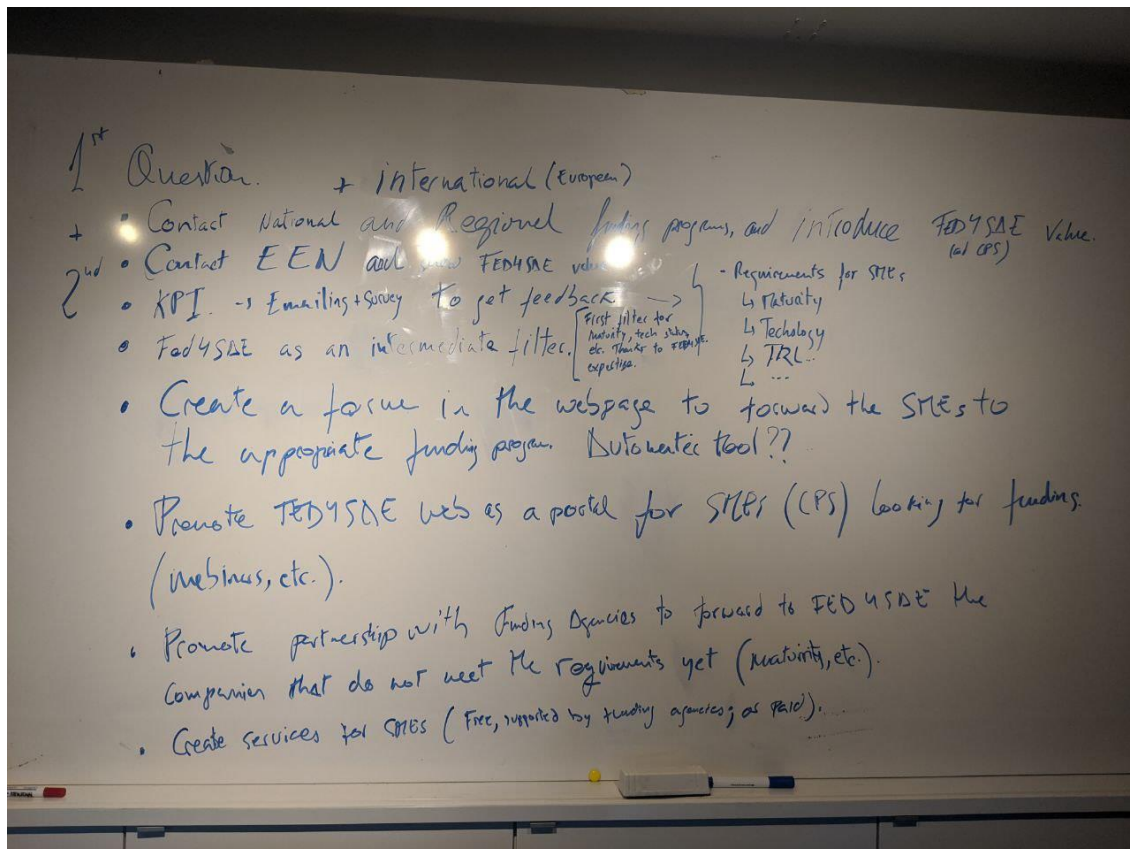 1st Question. + international (European)
+ • Contact National and Regional funding programs, and introduce FED4SAE value.
(ad CPS)
2nd • Contact EEN and show FED4SAE value
• KPI. -> Emailing + Survey to get feedback ->
- Requirements for SMEs
↳ Maturity
↳ Techology
↳ TRL...
↳ ...
• Fed4SAE as an intermediate filter.
First filter for
maturity, tech status,
etc. Thanks to FED4SAE.
expertise.
• Create a forme in the webpage to forward the SMEs to
the appropiate funding program. Automatic tool??
• Promote FED4SAE web as a portal for SMEs (CPS) looking for funding.
(webinars, etc.).
• Promote partnership with Funding Agencies to forward to FED4SAE the
companies that do not meet the requirements yet (maturity, etc.).
• Create services for SMEs (Free, supported by funding agencies; or paid).